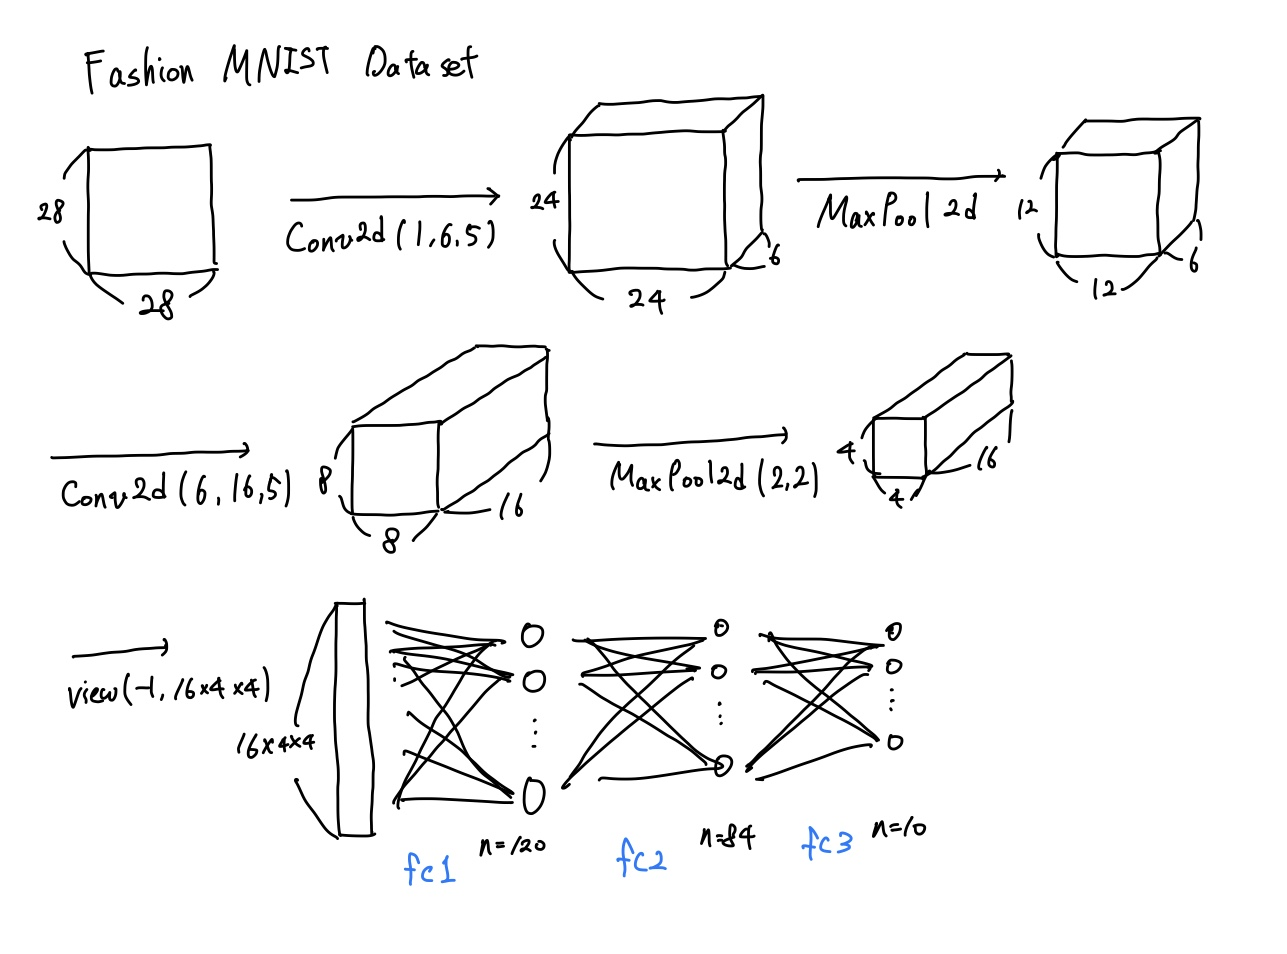 Fashion MNIST Dataset
28
28
Conv2d (1,6,5)
24
24
6
MaxPool 2d
12
12
6
Conv2d (6, 16,5)
8
8
16
MaxPool2d (2,2)
4
4
16
view(-1, 16×4×4)
16×4×4
n=120
fc1
n=84
fc2
n=10
fc3